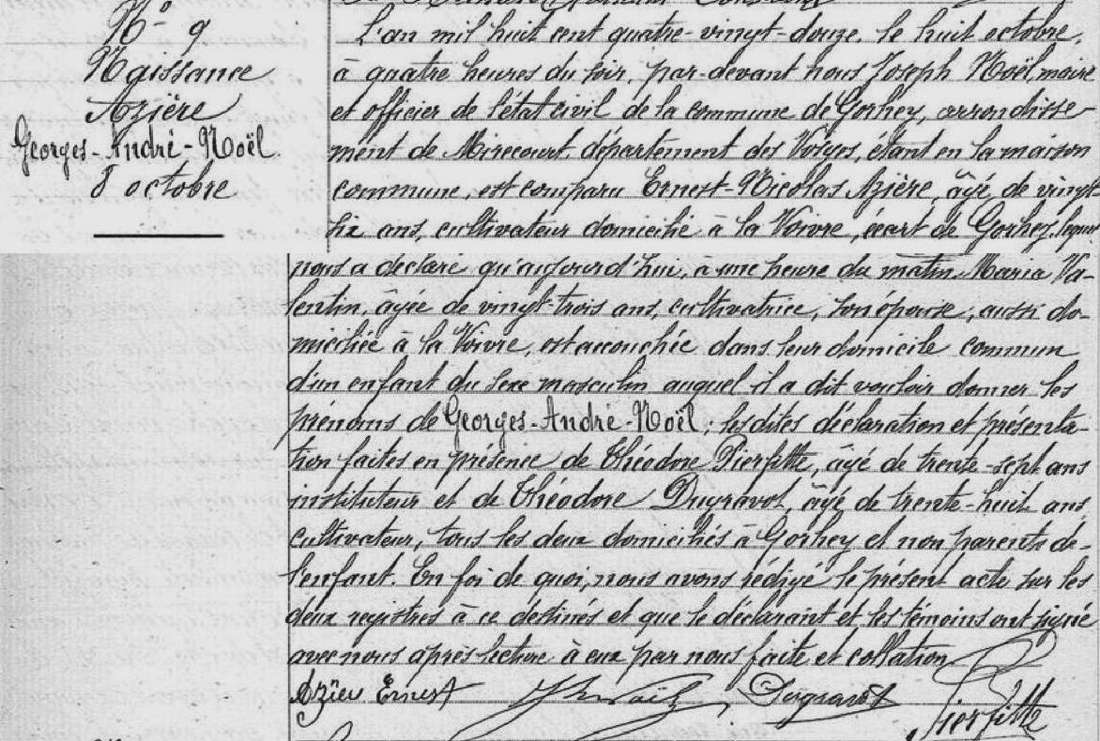 N° 9
Naissance
Azière
Georges-André-Noël
8 octobre
L'an mil huit cent quatre-vingt-douze, le huit octobre,
à quatre heures du soir, par-devant nous Joseph Noël, maire
et officier de l'état civil de la commune de Gorhey, arrondisse-
ment de Mirecourt, département des Vosges, étant en la maison
commune, est comparu Ernest-Nicolas Azière, âgé de vingt-
six ans, cultivateur domicilié à la Voivre, écart de Gorhey, lequel
nous a déclaré qu'aujourd'hui, à une heure du matin Maria Va-
lentin, âgée de vingt-trois ans, cultivatrice, son épouse, aussi do-
miciliée à la Voivre, est accouchée dans leur domicile commun
d'un enfant du sexe masculin auquel il a dit vouloir donner les
prénoms de Georges-André-Noël; lesdites déclaration et présenta-
tion faites en présence de Théodore Pierfitte, âgé de trente-sept ans
instituteur et de Théodore Dugravot, âgé de trente-huit ans,
cultivateur, tous les deux domiciliés à Gorhey et non parents de
l'enfant. En foi de quoi, nous avons rédigé le présent acte sur les
deux registres à ce destinés et que le déclarant et les témoins ont signé
avec nous après lecture à eux par nous faite et collation
Azière Ernest J Noël Dugravot Pierfitte